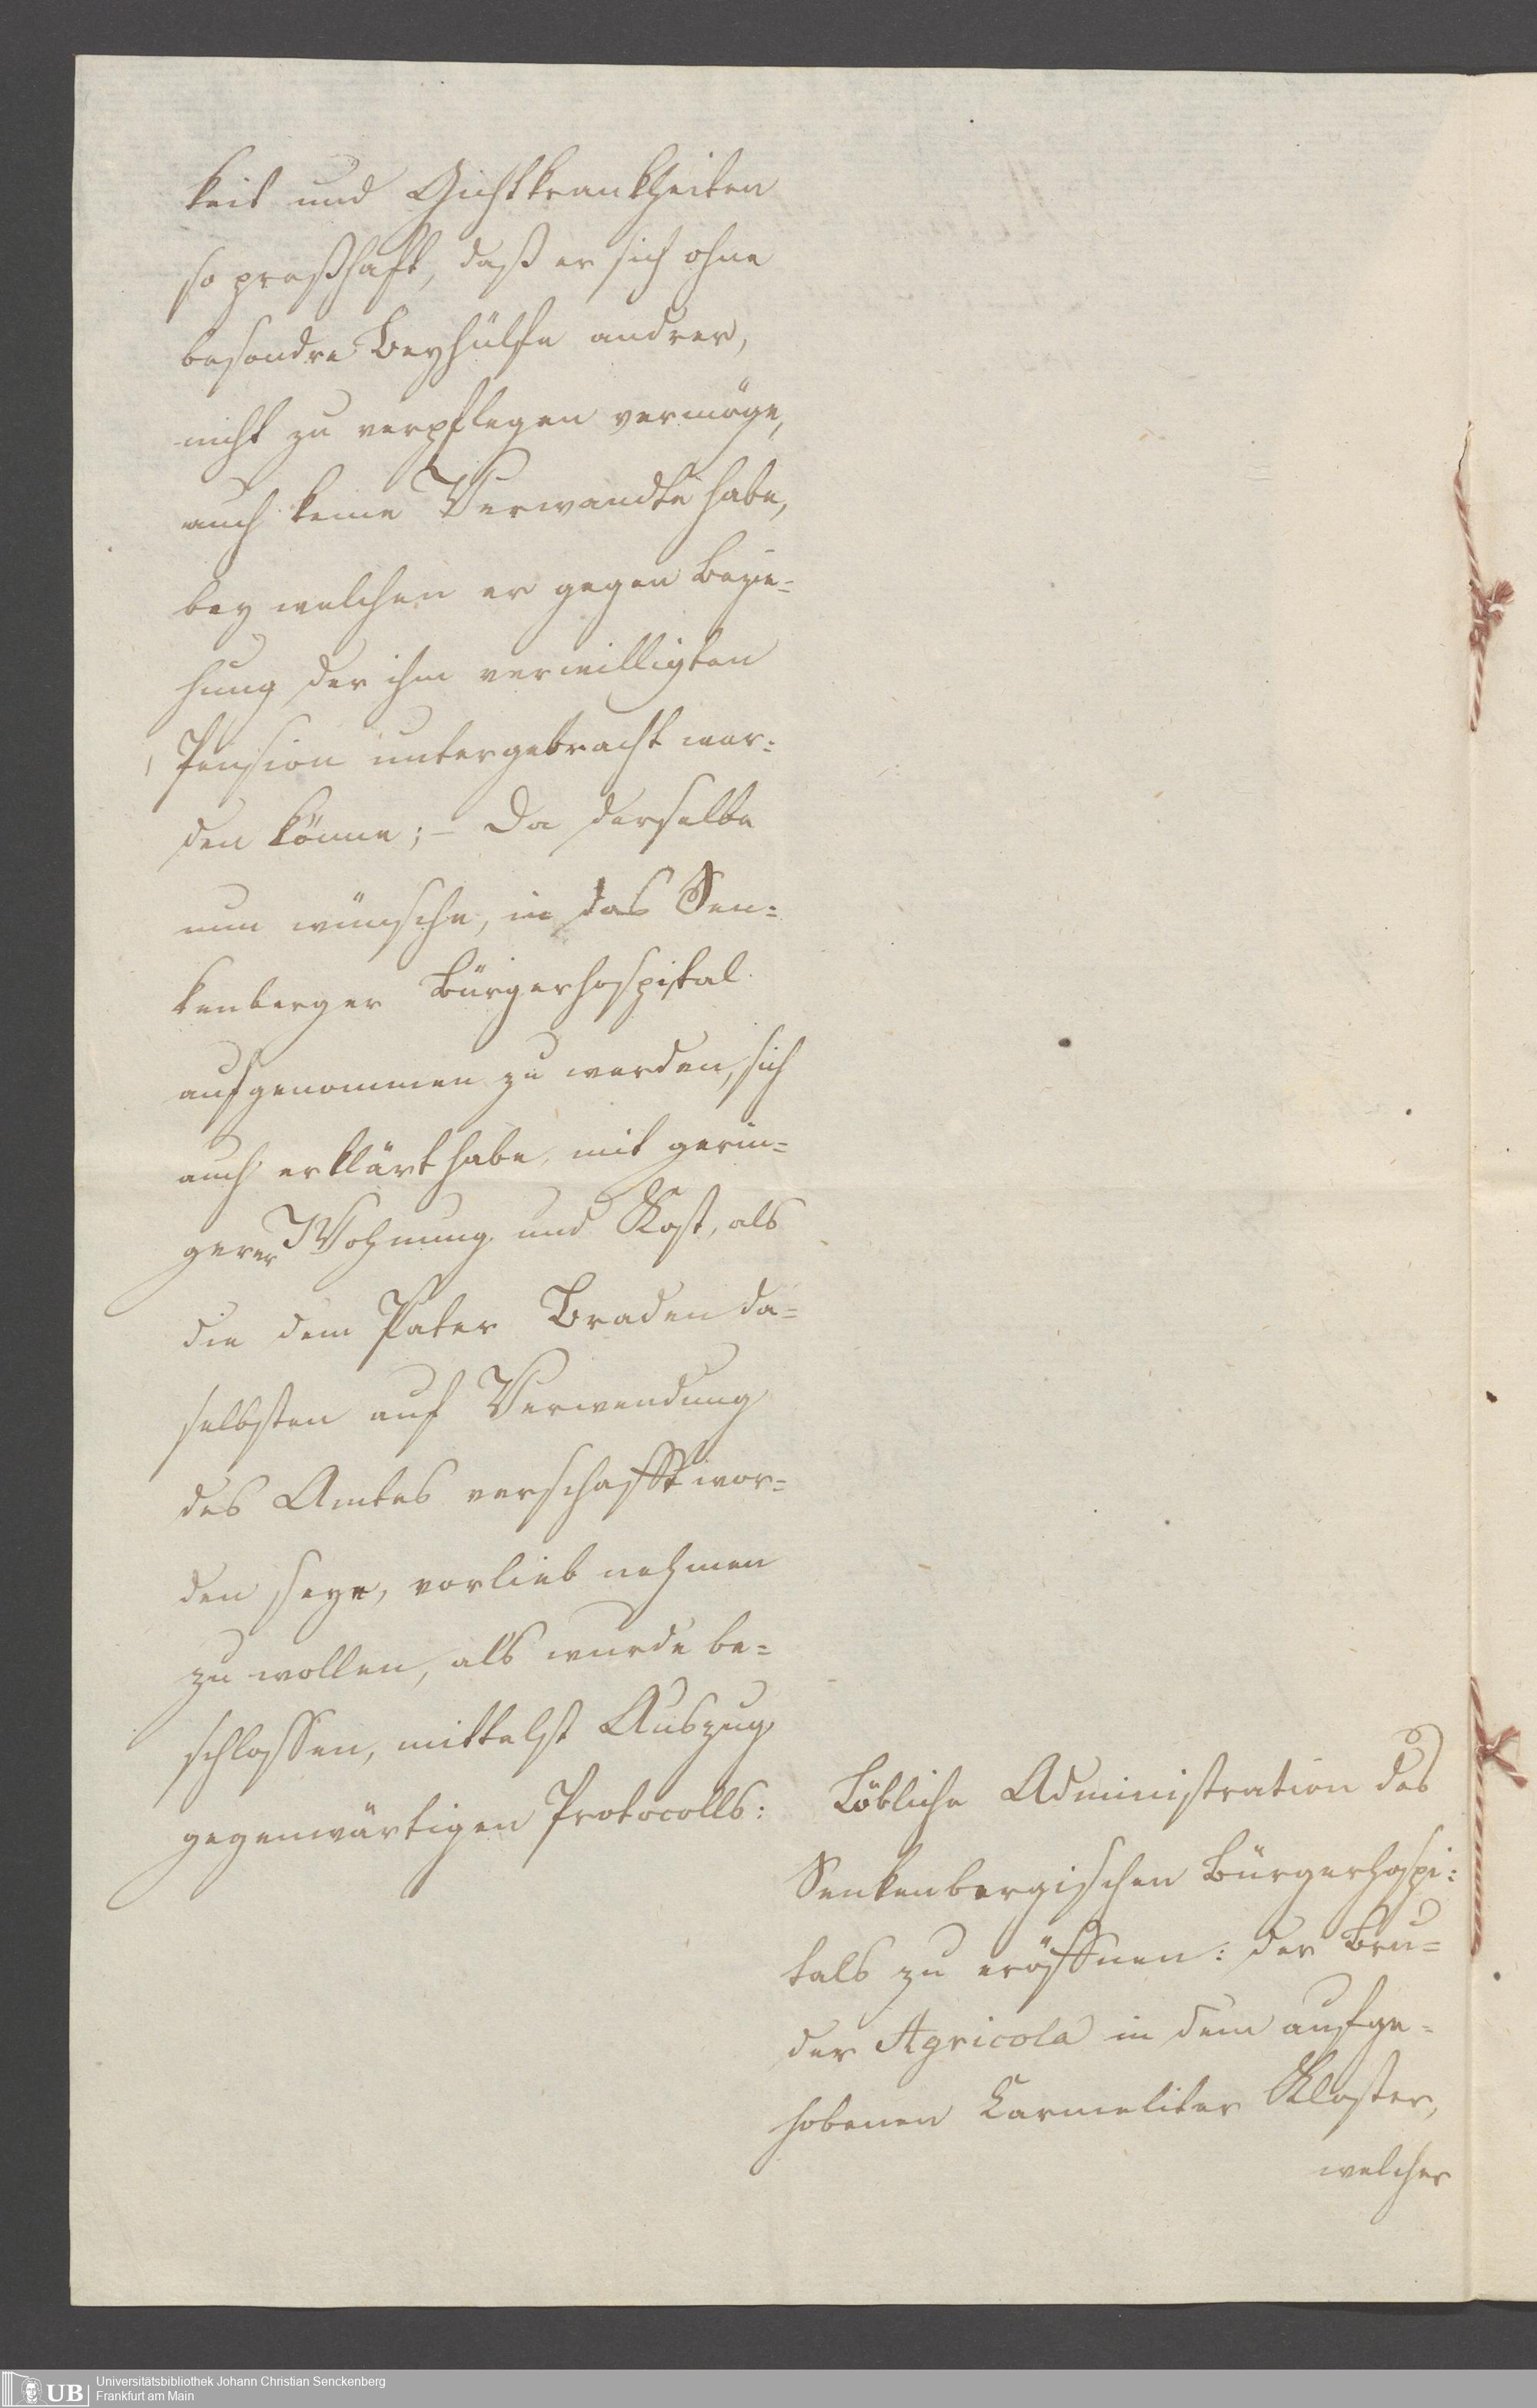 keit und Gichtkrankheiten
so preßhaft, daß er sich ohne
besondre Beyhülfe andrer,
nicht zu verpflegen vermöge,
auch keine Verwandte habe,
bey welchen er gegen Bezie=
hung der ihm verwilligten
Pension untergebracht wer=
den könne; – Da derselbe
nun wünsche, in das Sen=
kenberger Bürgerhospital
aufgenommen zu werden, sich
auch erklärt habe, mit gerin=
gerer Wohnung und Kost, als
die dem Pater Braden da=
selbsten auf Verwendung
des Amtes verschafft wor=
den seye, vorlieb nehmen
zu wollen, als wurde be=
schlossen, mittelst Auszug
gegenwärtigen Protocolls:
Löbliche Administration des
Senkenbergischen Bürgerhospi=
tals zu eröffnen: der Bru=
der Agricola in dem aufge=
hobenen Carmeliter Kloster,
welcher
UB
Universitätsbibliothek Johann Christian Senckenberg
Frankfurt am Main